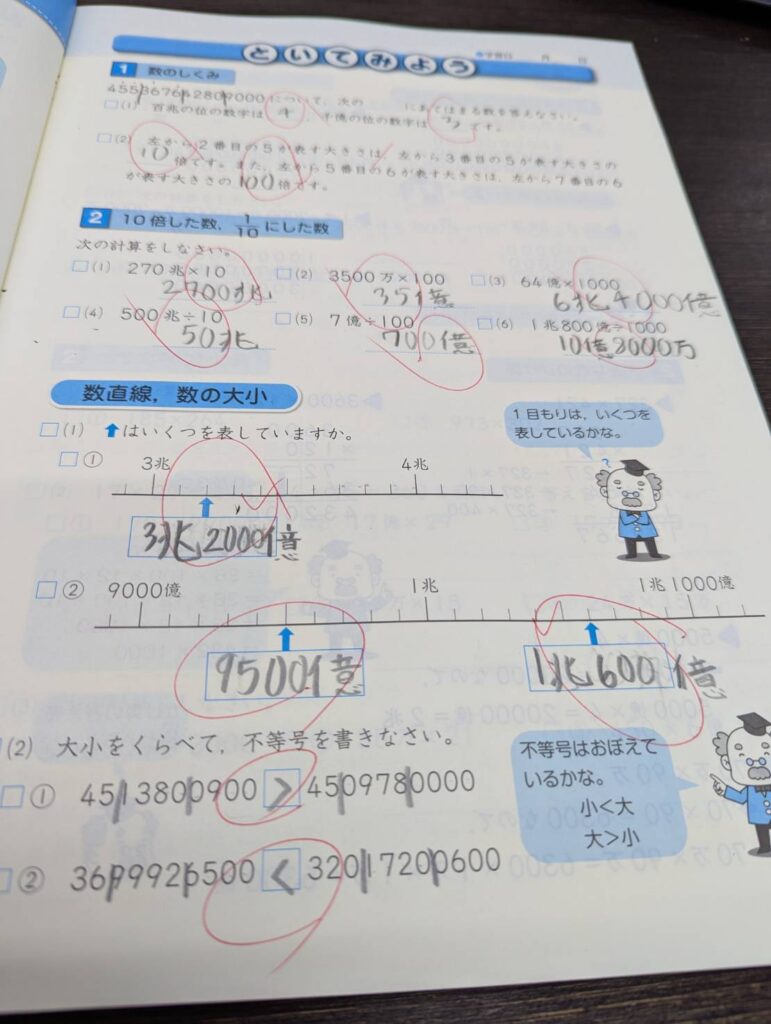 といてみよう
学習日 月 日
1 数のしくみ
4553676428090000について、次の にあてはまる数を答えなさい。
(1) 百兆の位の数字は 4 、千億の位の数字は です。
(2) 左から2番目の5が表す大きさは、左から3番目の5が表す大きさの
10倍です。また、左から5番目の6が表す大きさは、左から7番目の6
が表す大きさの100倍です。
2 10倍した数、1/10にした数
次の計算をしなさい。
(1) 270兆×10 (2) 3500万×100 (3) 64億×1000
2700兆 35億 6兆4000億
(4) 500兆÷10 (5) 7億÷100 (6) 1兆800億÷1000
50兆 700億 10億8000万
数直線、数の大小
(1) ↑はいくつを表していますか。
1目もりは、いくつを
表しているかな。
① 3兆 4兆
3兆2000億
② 9000億 1兆 1兆1000億
9500億 1兆600億
(2) 大小をくらべて、不等号を書きなさい。
① 4513800900 > 4509780000
② 3699926500 < 32017200600
不等号はおぼえて
いるかな。
小<大
大>小